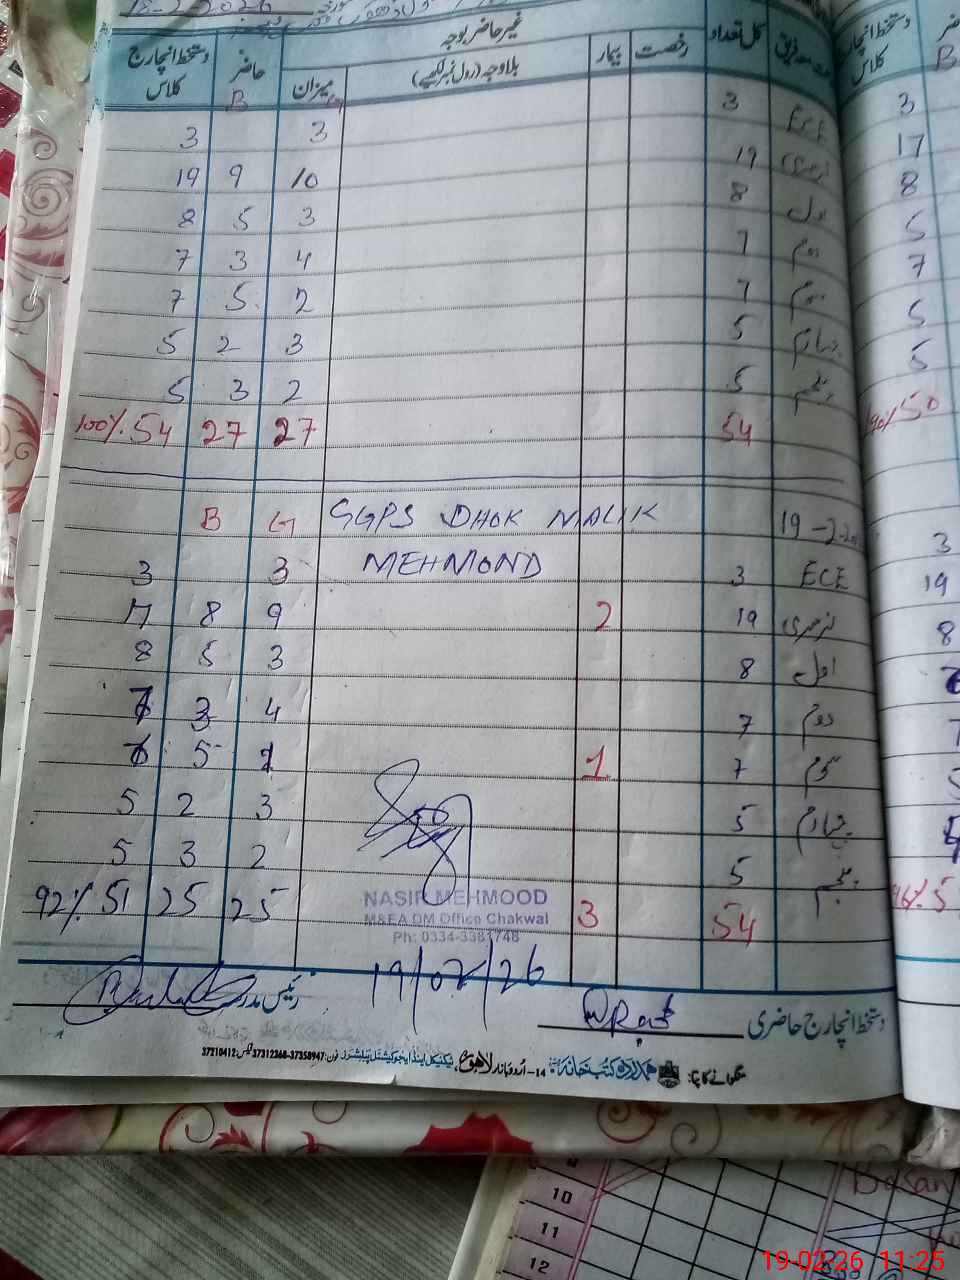 18-2-2026
مدفریق کل تعداد غیر حاضر بوجہ حاضر دستخط انچارج کلاس
رخصت بیمار بلاوجہ (رول نمبر لکھیے) میزان B
ECE 3 3 3
نرسری 19 10 9 19
اول 8 3 5 8
دوم 7 4 3 7
سوم 7 2 5 7
چہارم 5 3 2 5
پنجم 5 2 3 5
54 27 27 54 100%
19-2-2026 GGPS DHOK MALIK G B
MEHMOND
ECE 3 3 3
نرسری 19 2 9 8 17
اول 8 3 5 8
دوم 7 4 3 7
سوم 7 1 1 5 6
چہارم 5 3 2 5
پنجم 5 2 3 5
54 3 25 25 51 92%
NASIR MEHMOOD
M&EA DM Office Chakwal
Ph: 0334-3381748
19/02/26
دستخط انچارج حاضری رئیس مدرسہ
منگوانے کا پتا: ہمدرد کتب خانہ 14-اُردو بازار لاہور، ٹیکنیکل اینڈ ایجوکیشنل پبلشرز فون: 37358947-37312368 فیکس: 37210412
دستخط انچارج کلاس
B
3
17
8
5
7
5
5
50
3
19
8
96% 5
10
11
12
19-02-26 11:25